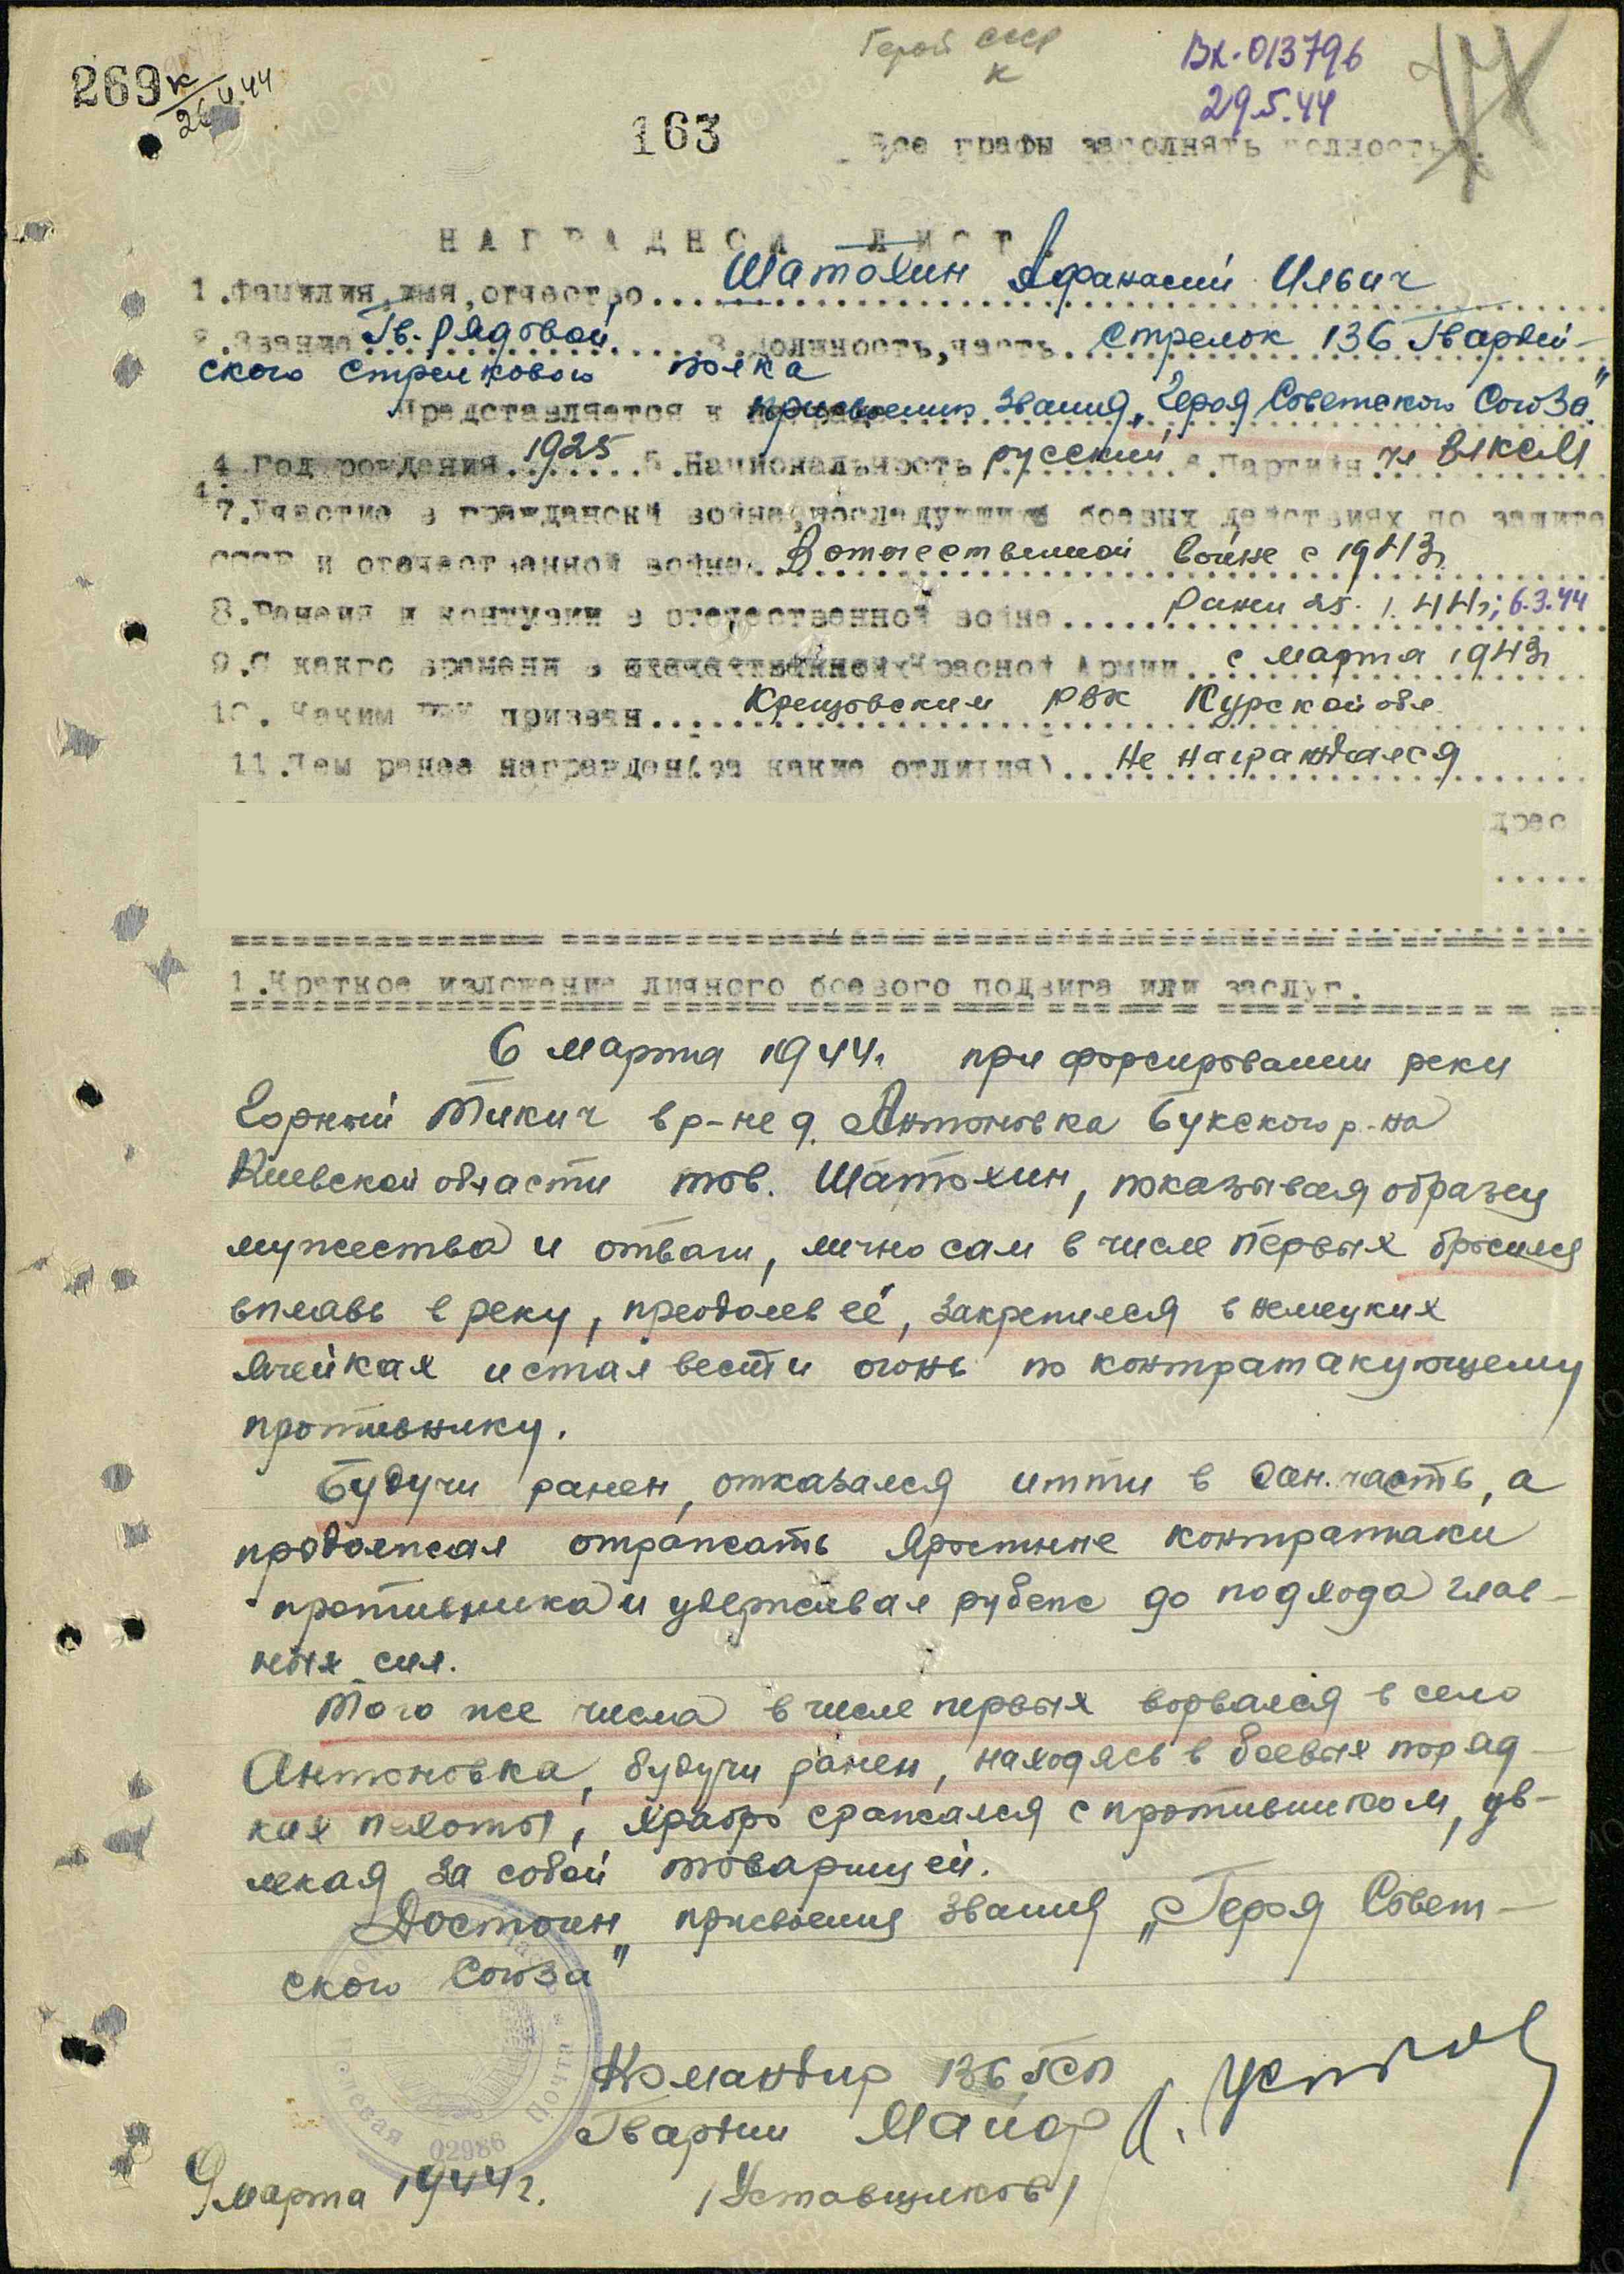 269 к/26.4.44
Герой СССР
к
Вх-013796
29.5.44
163
Все графы заполнять полностью.
НАГРАДНОЙ ЛИСТ.
1.Фамилия,имя,отчество.... Шатохин Афанасий Ильич
2.Звание Гв. рядовой 3.Должность,часть... стрелок 136 Гвардей-
ского стрелкового полка
Представляется к присвоению звания „Героя Советского Союза"
4.Год рождения 1925 5.Национальность русский 6.Партийн. чл ВЛКСМ
7.Участие в гражданской войне,последующих боевых действиях по защите
СССР и отечественной войне... В отечественной войне с 1943г
8.Ранения и контузии в отечественной войне..... Ранен 25.1.44г; 6.3.44
9.С какого времени в Красной Армии.. с марта 1943г
10.Каким РВК призван... РВК Курской обл.
11.Чем ранее награжден(за какие отличия)... не награждался
дрес
1.Краткое изложение личного боевого подвига или заслуг.
6 марта 1944г. при форсировании реки
Горный Тикич в р-не д. Антоновка Букского р-на
Киевской области тов. Шатохин, показывая образец
мужества и отваги, лично сам в числе первых бросился
вплавь в реку, преодолев её, закрепился в немецких
ячейках и стал вести огонь по контратакующему
противнику.
Будучи ранен, отказался итти в сан.часть, а
продолжал отражать яростные контратаки
противника и удерживал рубеж до подхода глав-
ных сил.
Того же числа в числе первых ворвался в село
Антоновка, будучи ранен, находясь в боевых поряд-
ках пехоты, храбро сражался с противником, ув-
лекая за собой товарищей.
Достоин присвоения звания „Героя Совет-
ского Союза"
Командир 136 ГСП
Гвардии Майор
/Уставщиков/
9 марта 1944г.
полевая почта
02986